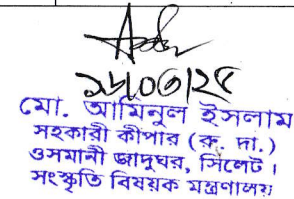 ১৬/০৩/২৫
মো. আমিনুল ইসলাম
সহকারী কীপার (রু. দা.)
ওসমানী জাদুঘর, সিলেট।
সংস্কৃতি বিষয়ক মন্ত্রণালয়